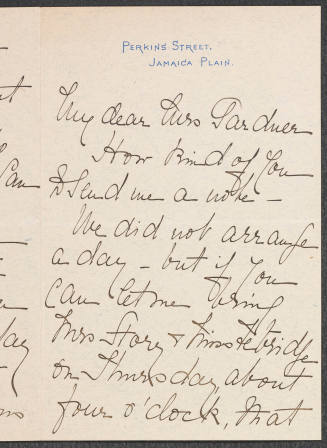 PERKINS STREET,
JAMAICA PLAIN.
My dear Mrs Gardner
How kind of you
to send me a note —
We did not arrange
a day — but if you
can let me bring
Mrs Story &
on Thursday about
four o'clock, that